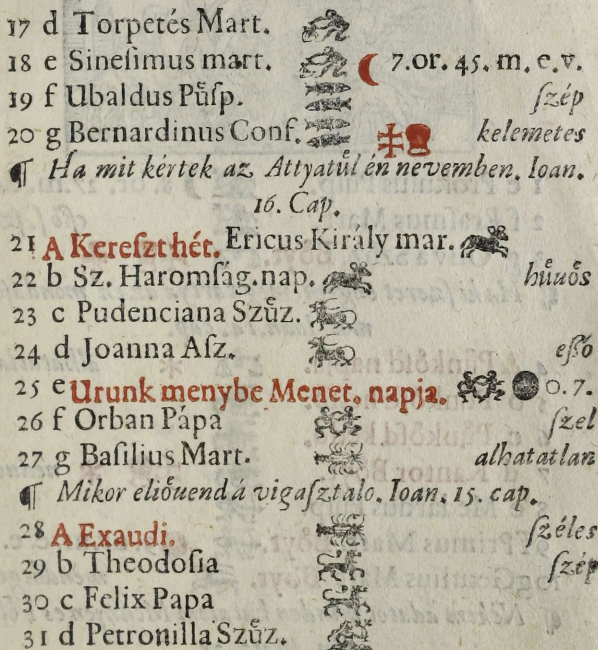 17 d Torpetés Mart.
18 e Sineſimus mart. 7. or. 45. m. e. v.
19 f Ubaldus Pűſp. ſzép
20 g Bernardinus Conf. kelemetes
¶ Ha mit kértek az Attyatűl én nevemben. Ioan.
16. Cap.
21 A Kereſzt hét. Ericus Király mar.
22 b Sz. Haromſág. nap. hűuős
23 c Pudenciana Szűz.
24 d Joanna Aſz. eßo
25 e Urunk menybe Menet. napja. 0. 7.
26 f Orban Pápa ſzel
27 g Baſilius Mart. alhatatlan
¶ Mikor eliőuend á vigaſztalo. Ioan. 15. cap.
28 A Exaudi. ſzéles
29 b Theodoſia ſzép
30 c Felix Papa
31 d Petronilla Szűz.